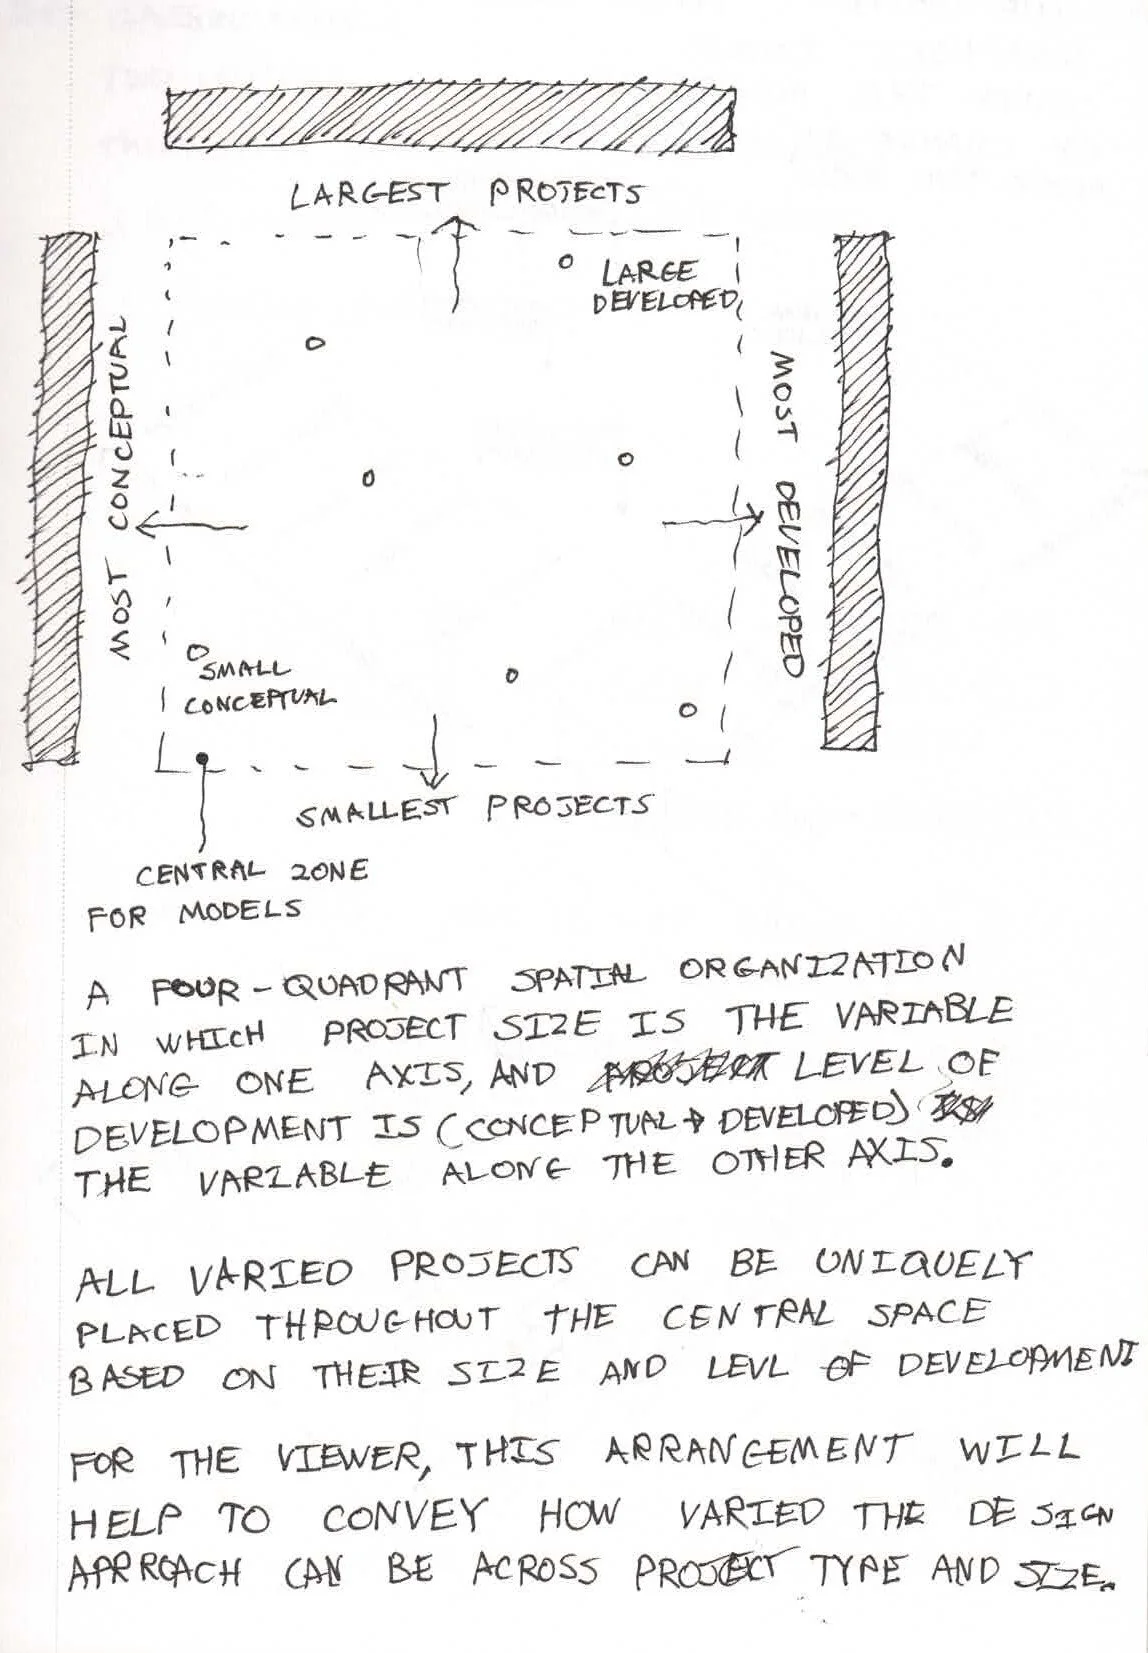 LARGEST PROJECTS
LARGE
DEVELOPED
MOST CONCEPTUAL
MOST DEVELOPED
SMALL
CONCEPTUAL
SMALLEST PROJECTS
CENTRAL ZONE
FOR MODELS
A FOUR-QUADRANT SPATIAL ORGANIZATION
IN WHICH PROJECT SIZE IS THE VARIABLE
ALONG ONE AXIS, AND LEVEL OF
DEVELOPMENT IS (CONCEPTUAL → DEVELOPED)
THE VARIABLE ALONG THE OTHER AXIS.
ALL VARIED PROJECTS CAN BE UNIQUELY
PLACED THROUGHOUT THE CENTRAL SPACE
BASED ON THEIR SIZE AND LEVL OF DEVELOPMENT
FOR THE VIEWER, THIS ARRANGEMENT WILL
HELP TO CONVEY HOW VARIED THE DESIGN
APPROACH CAN BE ACROSS PROJECT TYPE AND SIZE.